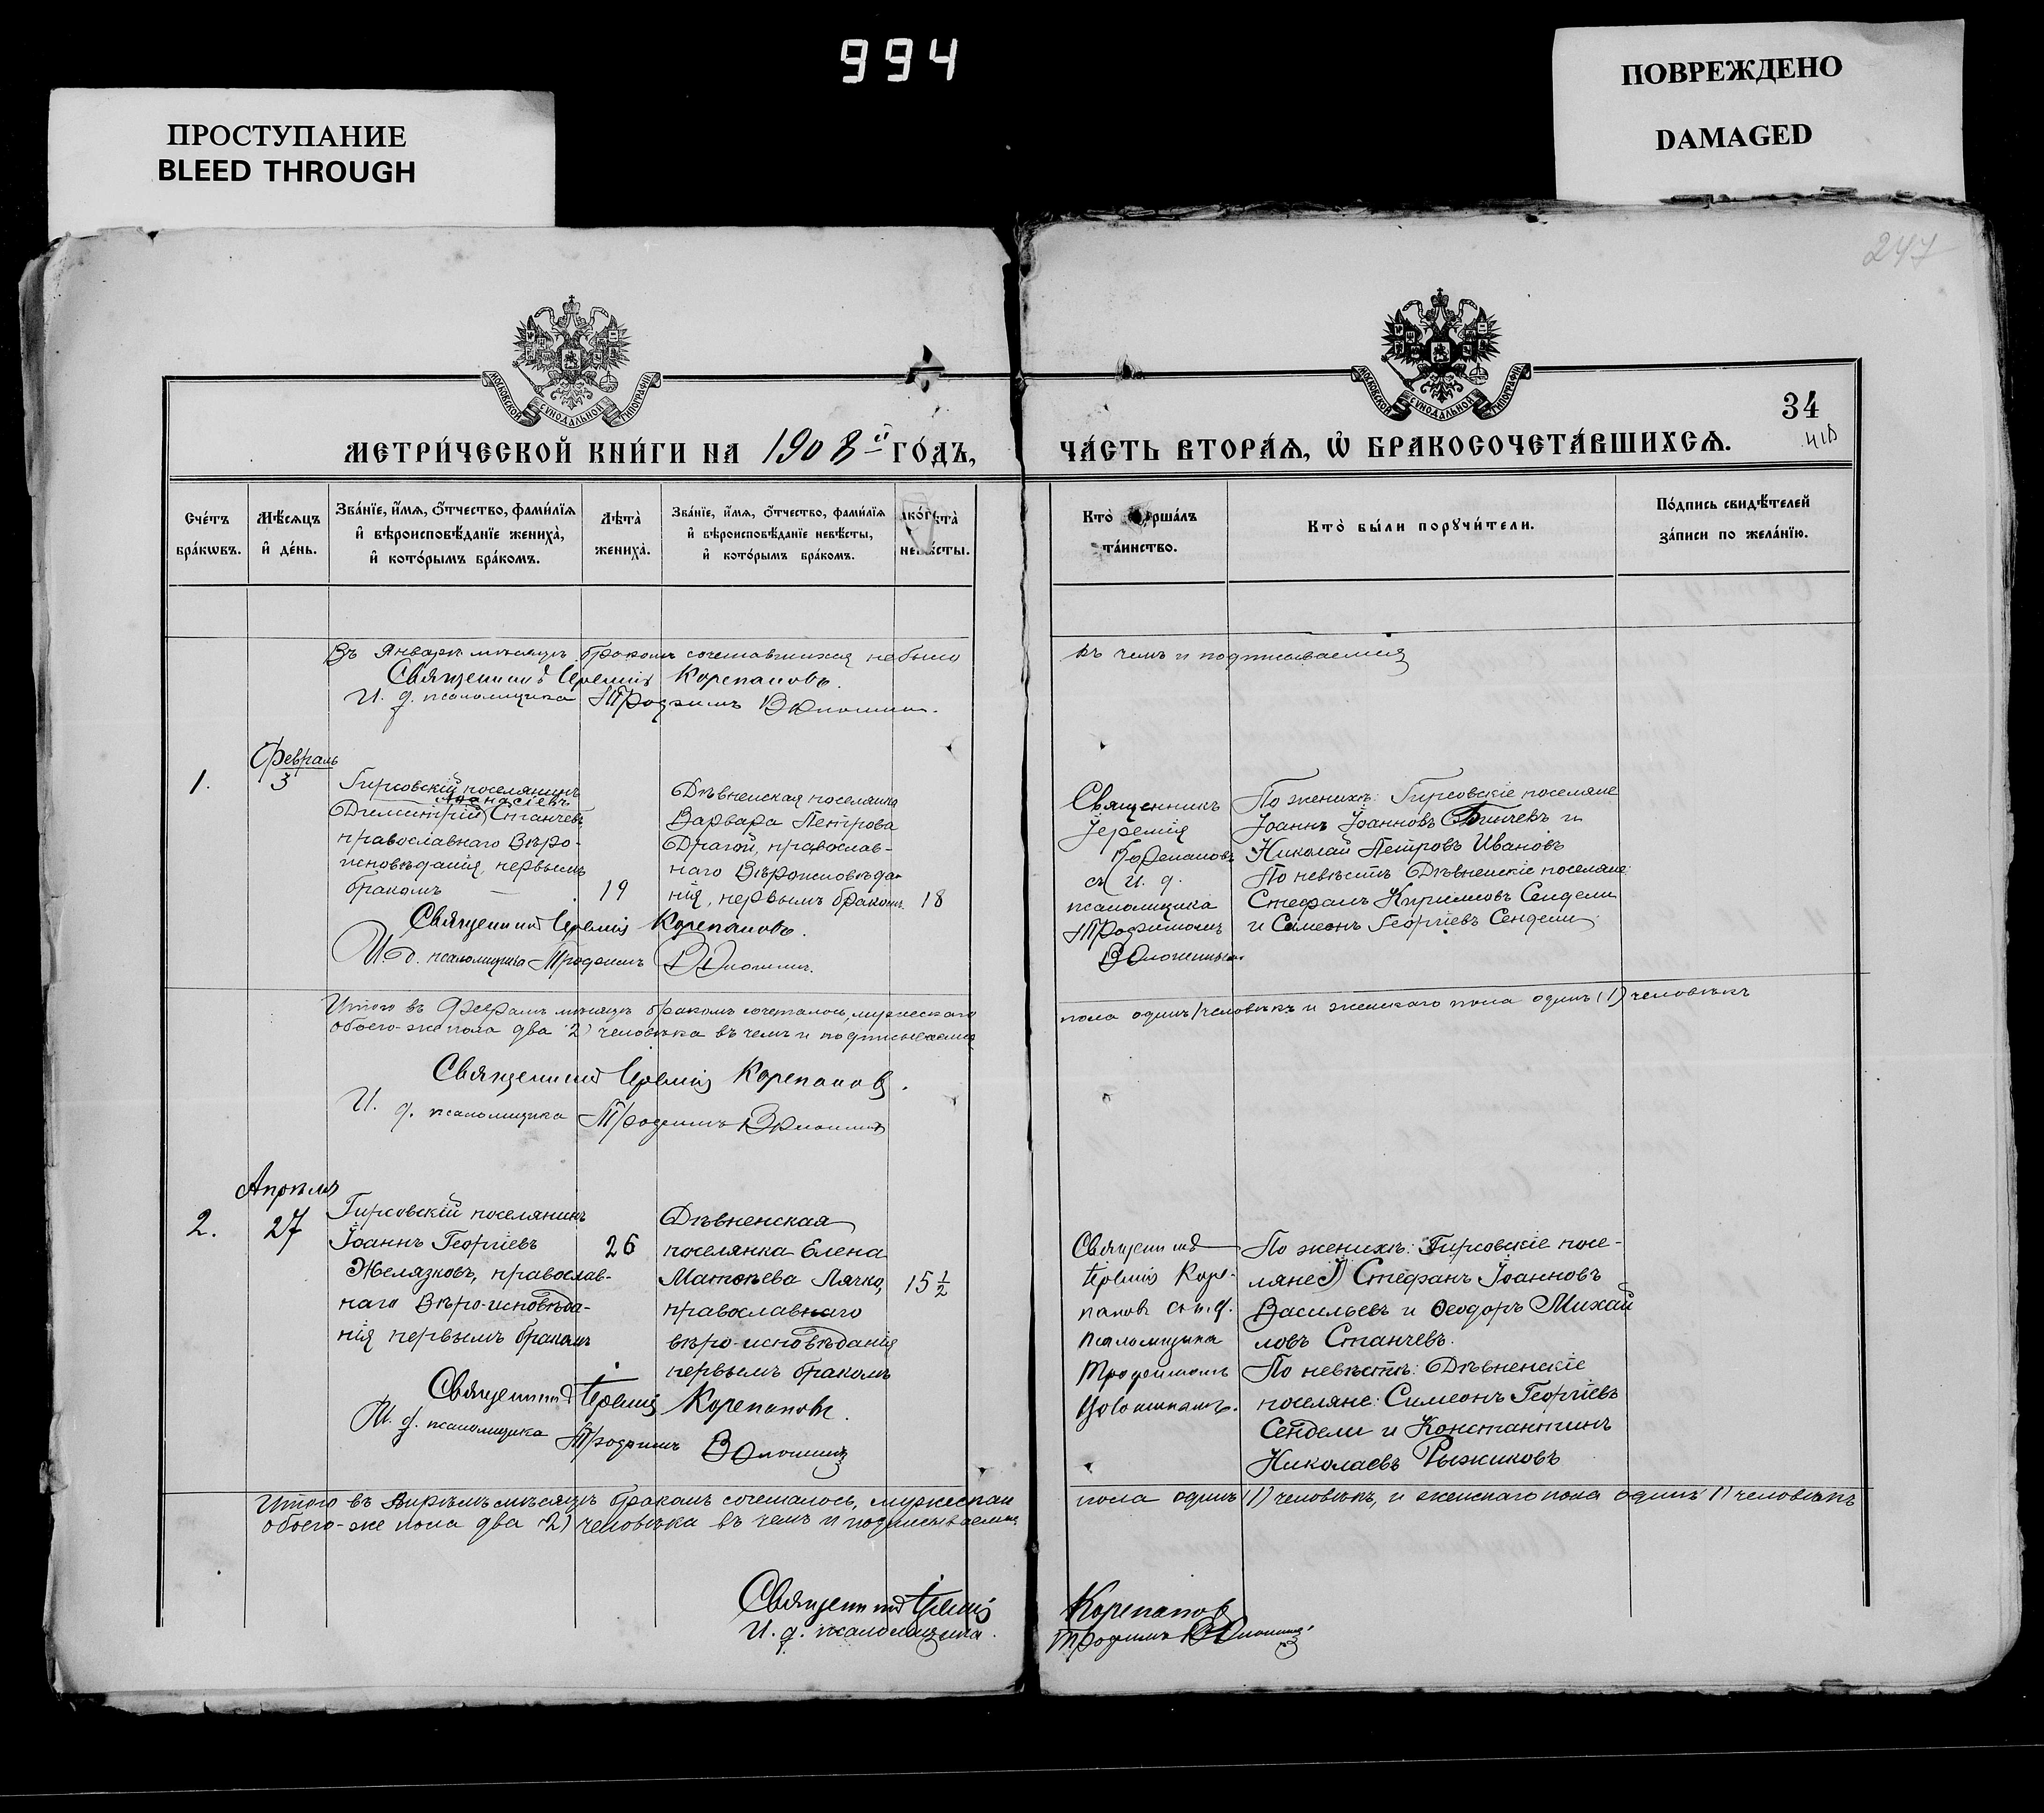 994
ПРОСТУПАНИЕ
BLEED THROUGH
ПОВРЕЖДЕНО
DAMAGED
247
МОСКОВСКОЙ СУНОДАЛЬНОЙ ТИПОГРАФІИ
МОСКОВСКОЙ СУНОДАЛЬНОЙ ТИПОГРАФІИ
34
МЕТРИ́ЧЕСКОЙ КНИ́ГИ НА 1908й ГО́ДЪ,
ЧА́СТЬ ВТОРА́Ѧ, Ѡ҆ БРАКОСОЧЕТА́ВШИХСѦ.
Сче́тъ бра́кѡвъ.
Мѣ́сяцъ и҆ де́нь.
Зва́нїе, и҆́мѧ, ѻ҆́тчество, фами́лїѧ
и҆ вѣроисповѣ́данїе жениха̀,
и҆ кото́рымъ бра́комъ.
Лѣ́та̀ жениха̀.
Зва́нїе, и҆́мѧ, ѻ҆́тчество, фами́лїѧ
и҆ вѣроисповѣ́данїе невѣ́сты,
и҆ кото́рымъ бра́комъ.
невѣ́сты.
Кто̀
та́инство.
Кто̀ бы́ли порꙋчи́тели.
По́дпись свидѣ́телей
за́писи по жела́нїю.
Въ Январѣ мѣсяцѣ бракомъ сочетавшихся не было
въ чемъ и подписываемся
Священникъ Іеремія Корепановъ.
И. д. псаломщика Трофимъ
1.
Февраль
3
Гирсовскій поселянинъ
Аѳанасіевъ
Димитрій Станчевъ
православнаго Вѣро-
исповѣданія, первымъ
бракомъ
19
Дѣвненская поселянка
Варвара Петрова
Драгой, православ-
наго Вѣроисповѣда-
нія, первымъ бракомъ.
18
Священникъ
Іеремія
Корепановъ
съ И. д.
псаломщика
Трофимомъ
По женихѣ: Гирсовскіе поселяне
Іоаннъ Іоанновъ Бинчевъ и
Николай Петровъ Ивановъ
По невѣстѣ Дѣвненскіе поселяне:
Стефанъ Кирилловъ Сендели
и Симеонъ Георгіевъ Сендели
Священникъ Іеремія Корепановъ.
И. д. псаломщика Трофимъ
Итого въ Февралѣ мѣсяцѣ бракомъ сочеталось, мужескаго
пола одинъ человѣкъ и женскаго пола одинъ (1) человѣкъ
обоего-же пола два (2) человѣка въ чемъ и подписываемся
Священникъ Іеремія Корепановъ.
И. д. псаломщика Трофимъ
2.
Апрѣль
27
Гирсовскій поселянинъ
Іоаннъ Георгіевъ
Желязковъ, православ-
наго Вѣро-исповѣда-
нія первымъ бракомъ
26
Дѣвненская
поселянка Елена
Матѳѣева Лячко,
православнаго
вѣро-исповѣданія
первымъ бракомъ
15 1/2
Священникъ
Іеремія Коре-
пановъ съ и. д.
псаломщика
Трофимомъ
По женихѣ: Гирсовскіе посе-
ляне Стефанъ Іоанновъ
Васильевъ и Ѳеодоръ Михай
ловъ Станчевъ.
По невѣстѣ: Дѣвненскіе
поселяне: Симеонъ Георгіевъ
Сендели и Константинъ
Николаевъ Рыжиковъ
Священникъ Іеремія Корепановъ.
И. д. псаломщика Трофимъ
Итого въ Апрѣлѣ мѣсяцѣ бракомъ сочеталось, мужескаго
пола одинъ (1) человѣкъ, и женскаго пола одинъ (1) человѣкъ
обоего-же пола два (2) человѣка въ чемъ и подписываемся
Священникъ Іеремія Корепановъ
И. д. псаломщика Трофимъ